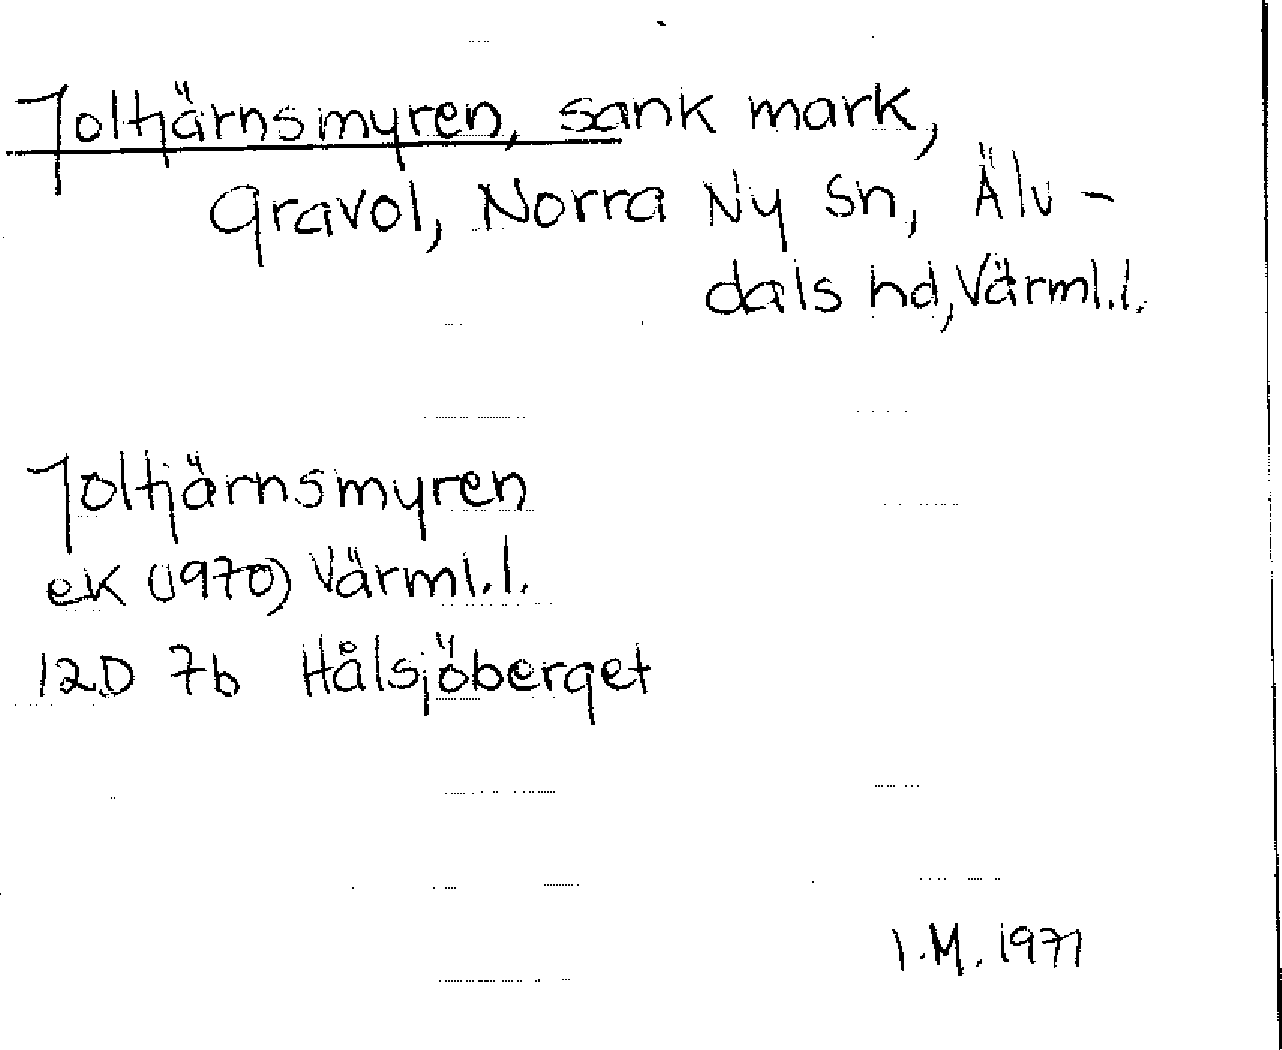 Joltjärnsmyren, sank mark,
Gravol, Norra Ny sn, Älv-
dals hd, Värml.l.
Joltjärnsmyren
ek (1970) Värml.l.
12D 7b Hålsjöberget
I.M. 1971